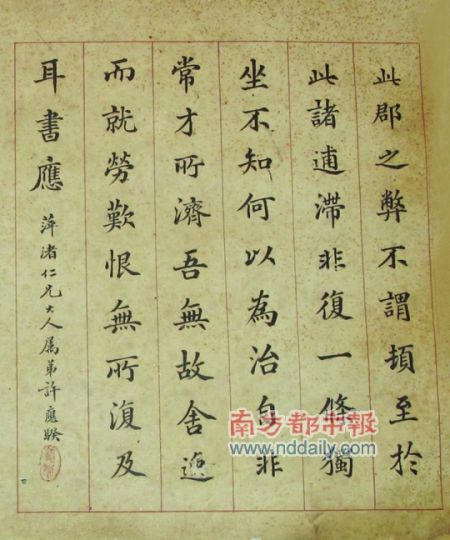 此郡之弊不謂頓至於
此諸逋滯非復一條獨
坐不知何以為治自非
常才所濟吾無故舍逸
而就勞歎恨無所復及
耳書應
萍渚仁兄大人属弟許應騤
南方都市報
www.nddaily.com